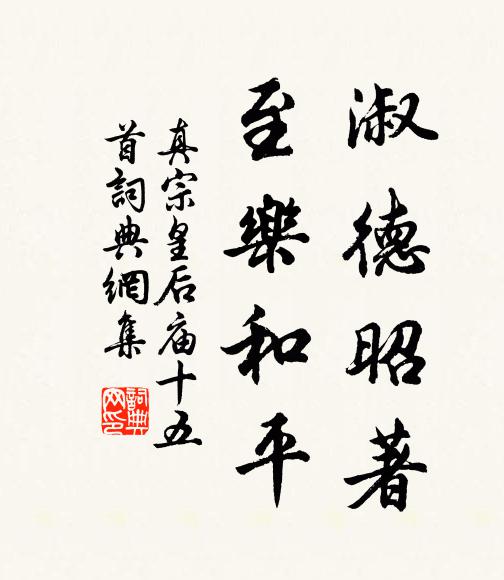 淑德昭著
至樂和平
真宗皇后庙十五
首詞典網集
詞典网印